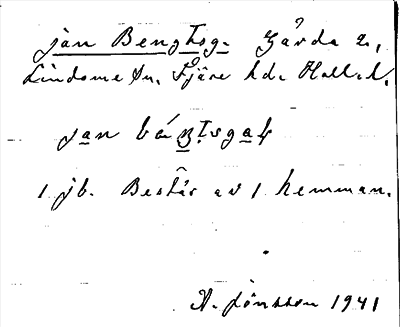 jan Bengtsg. Gårda 2,
Lindome sn. Fjäre hd. Hall. l.
jan
1 jb. Består av 1 hemman.
A. Jönsson 1941